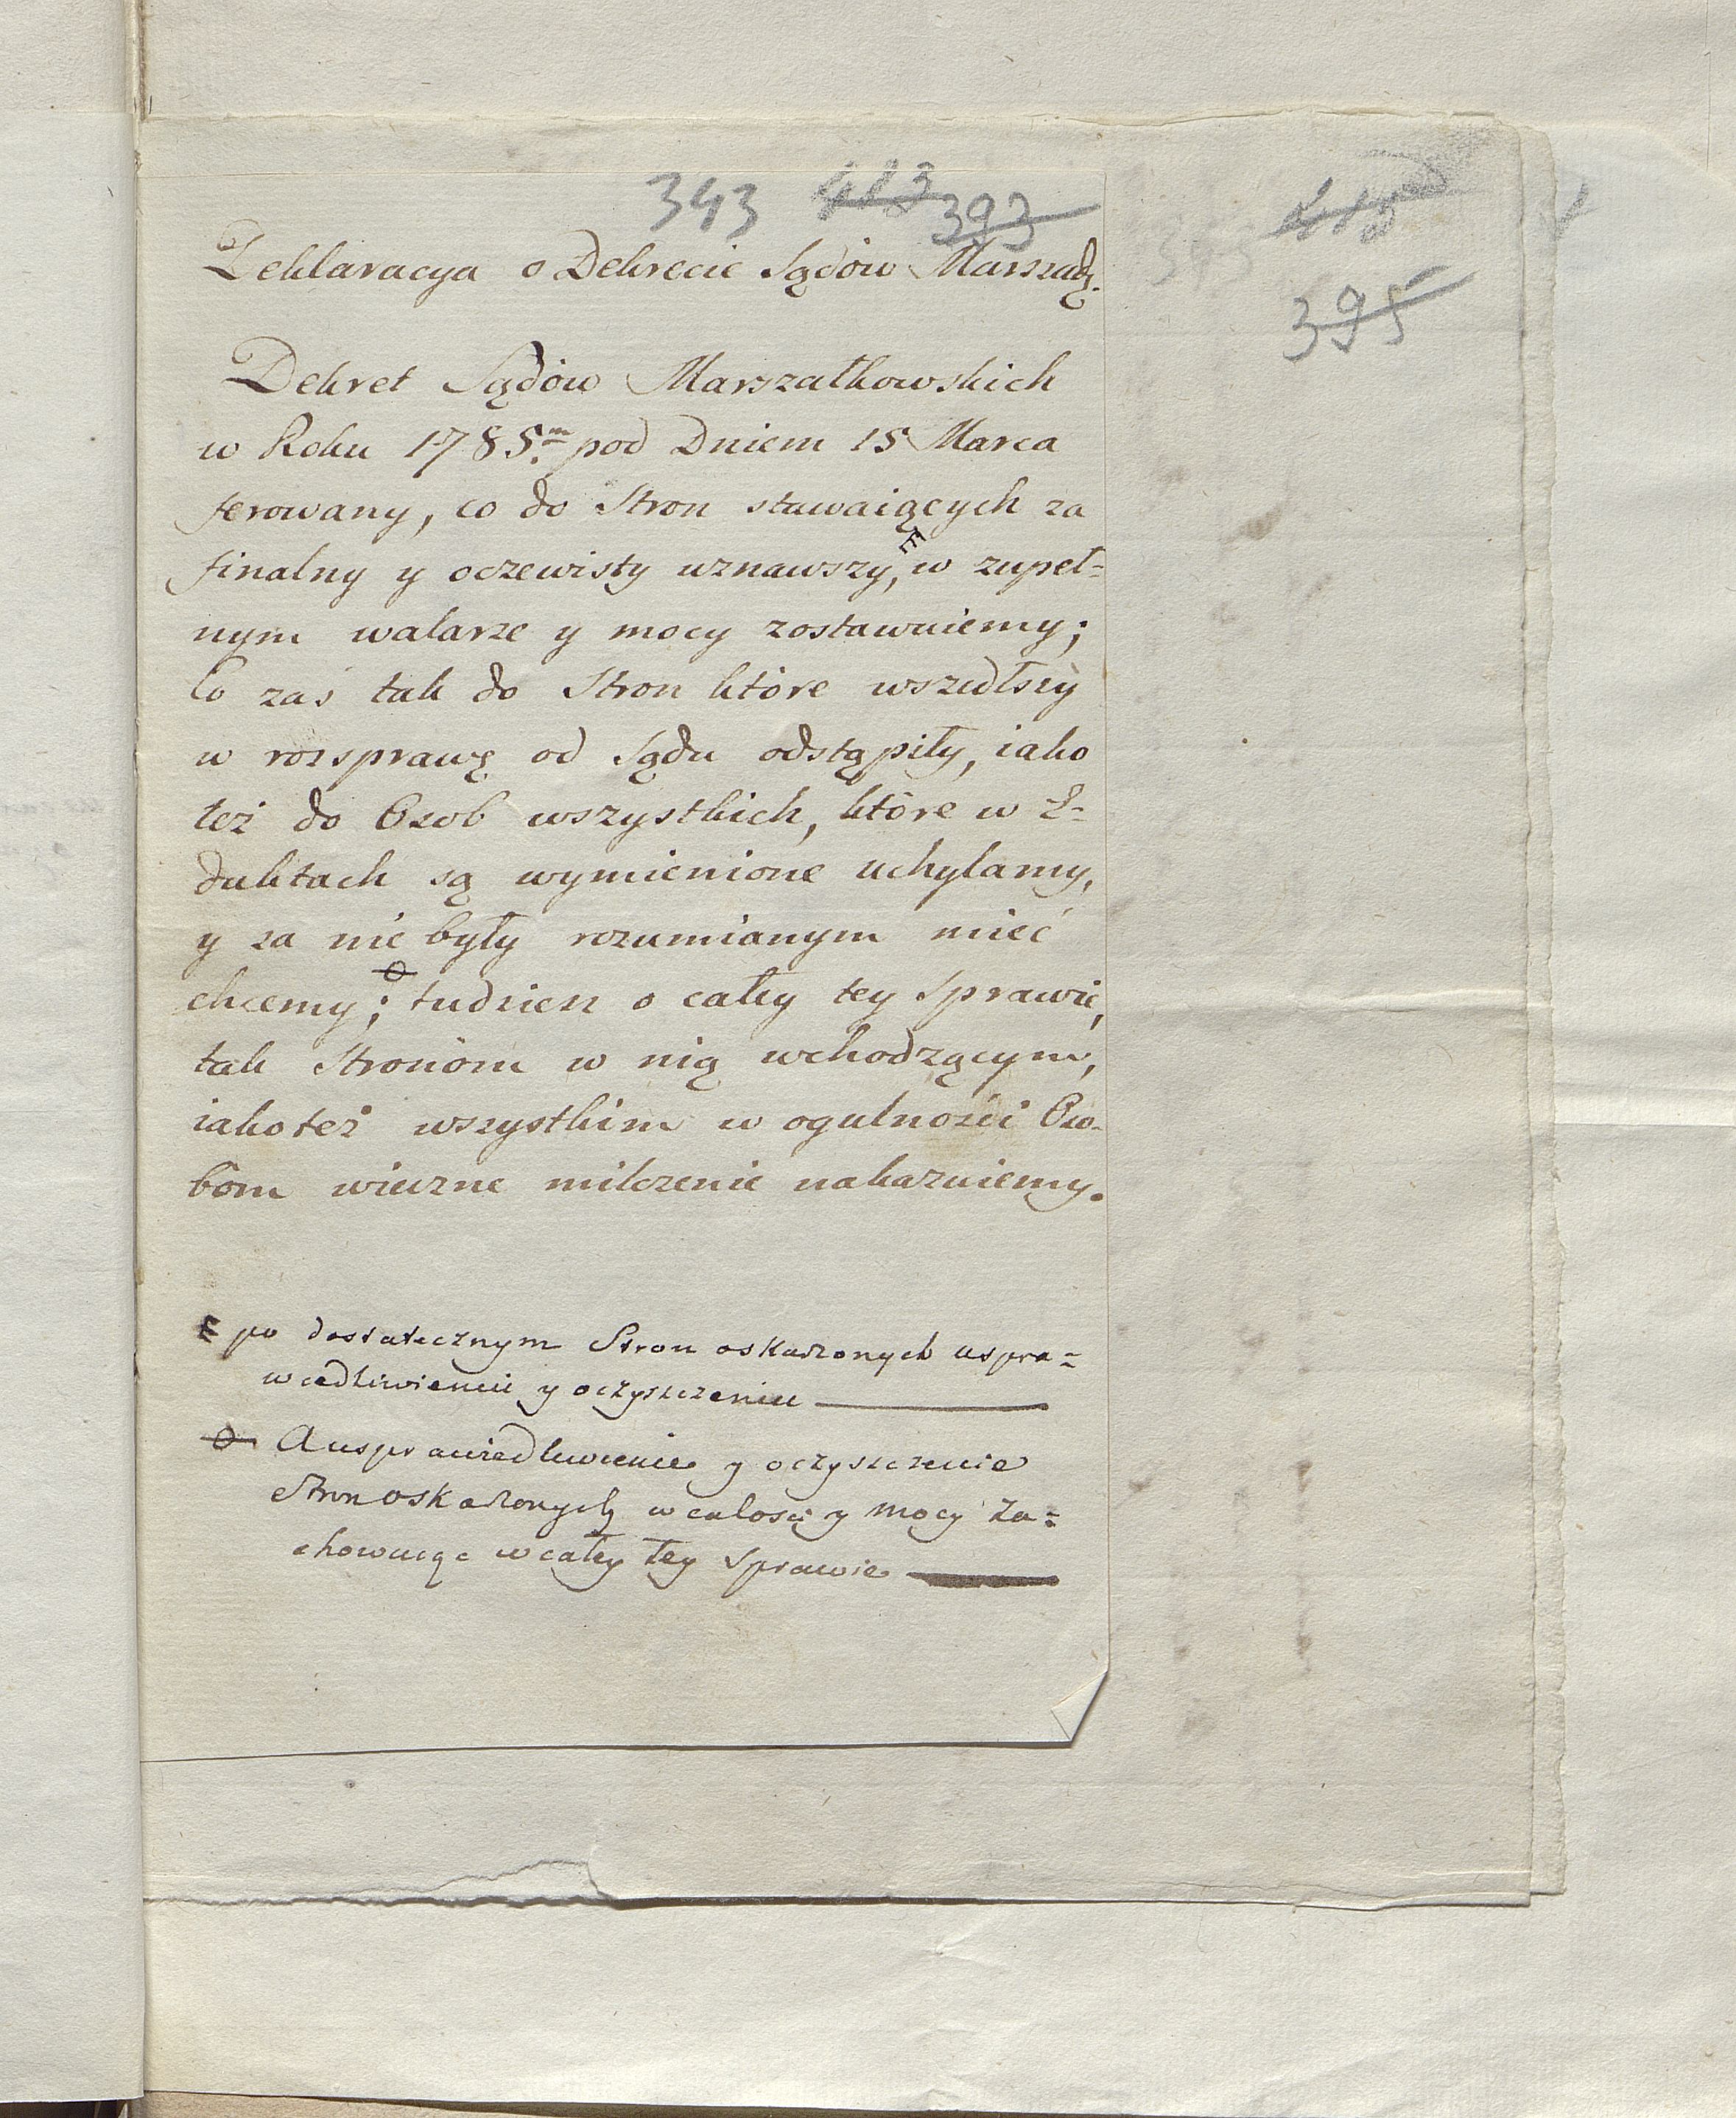 343 413 393
Deklaracya o Dekrecie Sądów Marszałk.
413
395
Dekret Sądów Marszałkowskich
w Roku 1785.m pod Dniem 15 Marca
ferowany, co do Stron stawaiących za
finalny y oczewisty uznawszy, E w zupeł=
nym walarze y mocy zostawuiemy;
Co zaś tak do Stron które wszedłszy
w rozsprawę od Sądu odstąpiły, iako
też do Osob wszystkich, które w E=
duktach są wymienione uchylamy,
y za nie były rozumianym mieć
chcemy; tudziesz o całey tey sprawie,
tak Stronóm w nią wchodzącym,
iakoteż wszystkim w ogulności Oso-
bóm wieczne milczenie nakazuiemy.
E po dostatecznym Stron oskarżonych uspra=
wiedliwieniu y oczyszczeniu
A usprawiedliwienie y oczyszczenie
Stron oskarżonych w całości y mocy za=
chowuiąc w całey tey sprawie